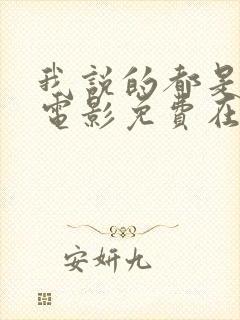 我説的都是
電影免費在
安妍九